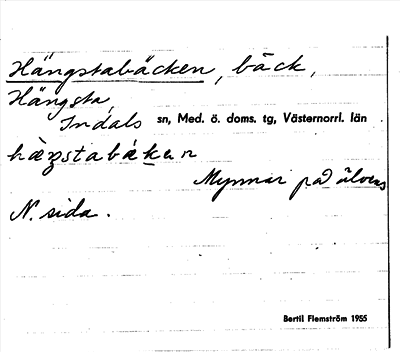 Hängstabäcken, bäck,
Hängsta,
Indals sn, Med. ö. doms. tg, Västernorrl. län
hæŋstabækɛn
Mynnar på älvens
N. sida.
Bertil Flemström 1955